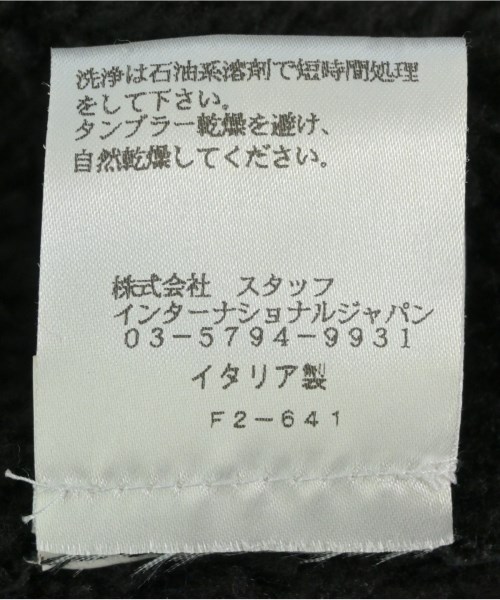 洗浄は石油系溶剤で短時間処理
をして下さい。
タンブラー乾燥を避け、
自然乾燥してください。
株式会社　スタッフ
インターナショナルジャパン
０３－５７９４－９９３１
イタリア製
Ｆ２－６４１